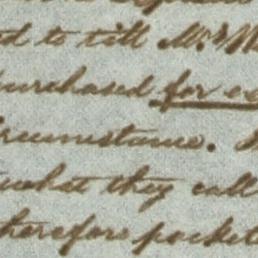 to till Mrs
purchased for
circumstance.
what they call
therefore pocket